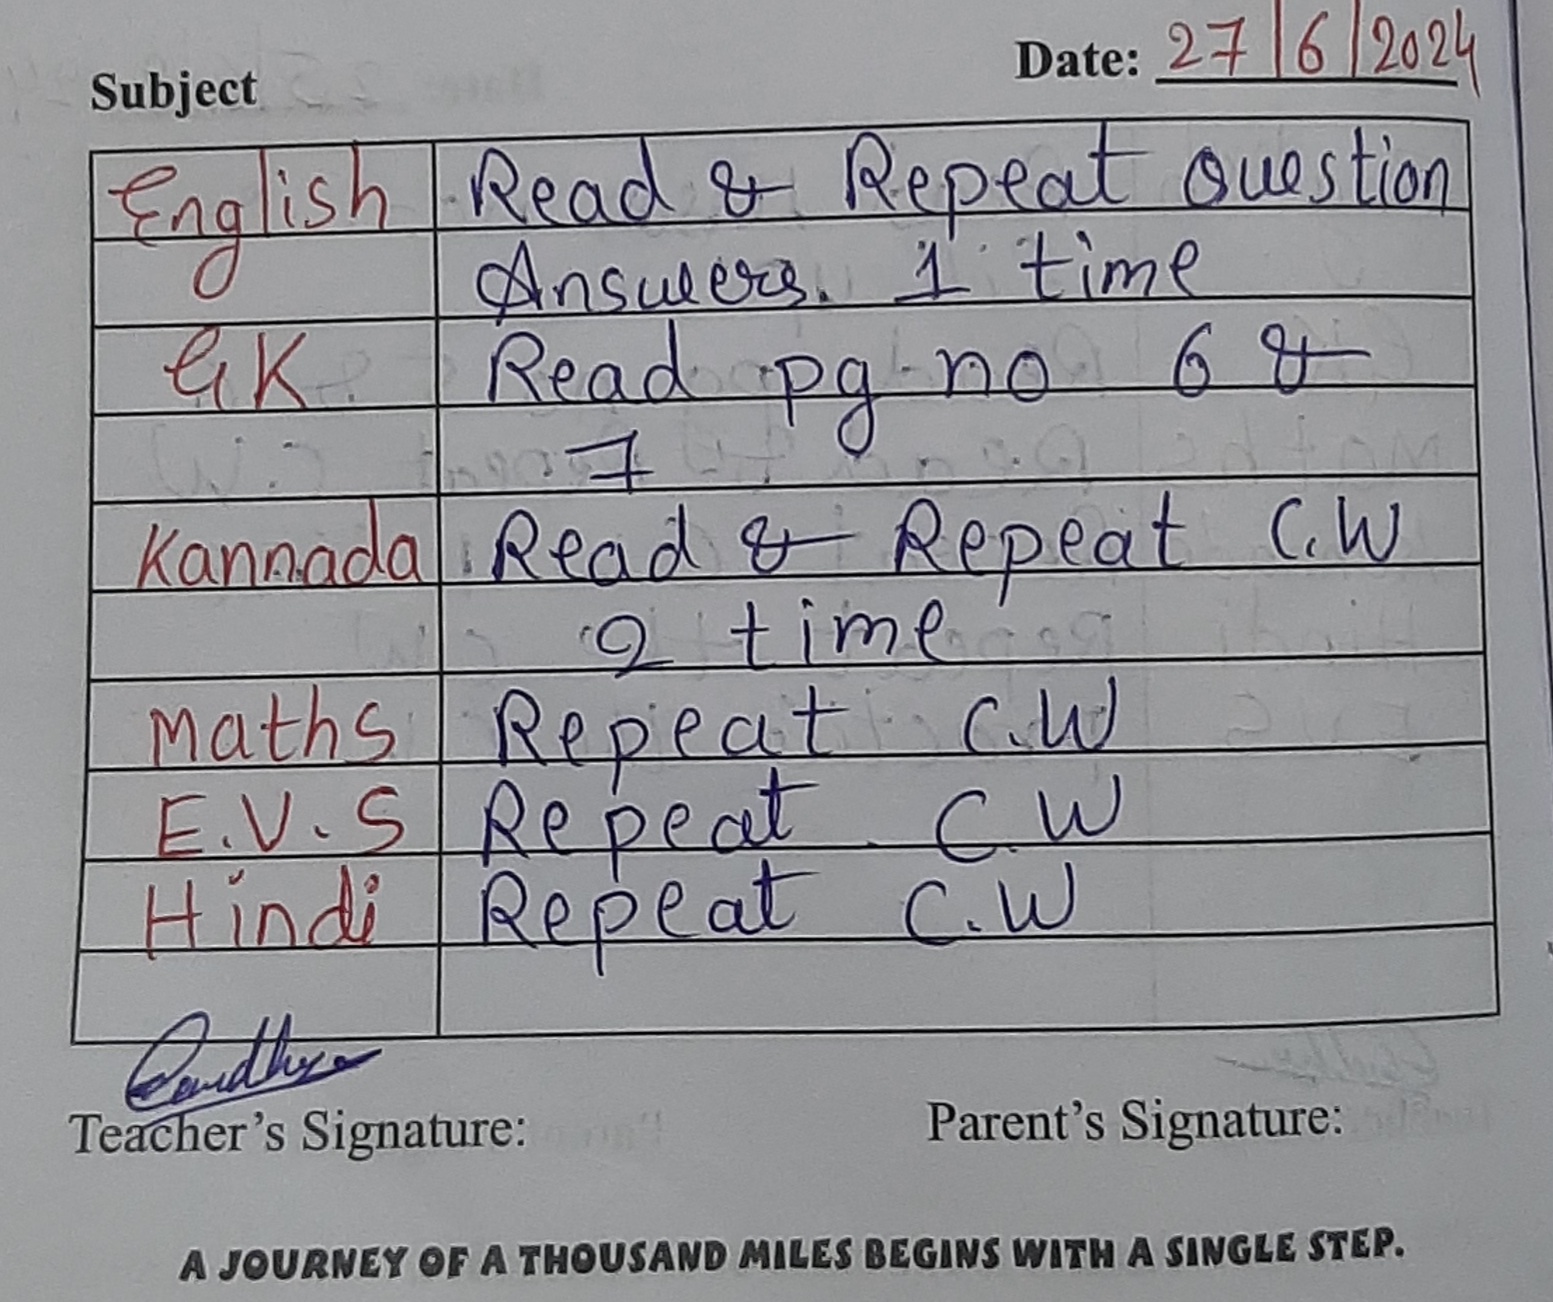 Subject Date: 27/6/2024
English Read & Repeat Question
Answers. 1 time
GK Read pg no 6 &
7
Kannada Read & Repeat C.W
2 time
Maths Repeat C.W
E.V.S Repeat C.W
Hindi Repeat C.W
Teacher's Signature: Parent's Signature:
A JOURNEY OF A THOUSAND MILES BEGINS WITH A SINGLE STEP.